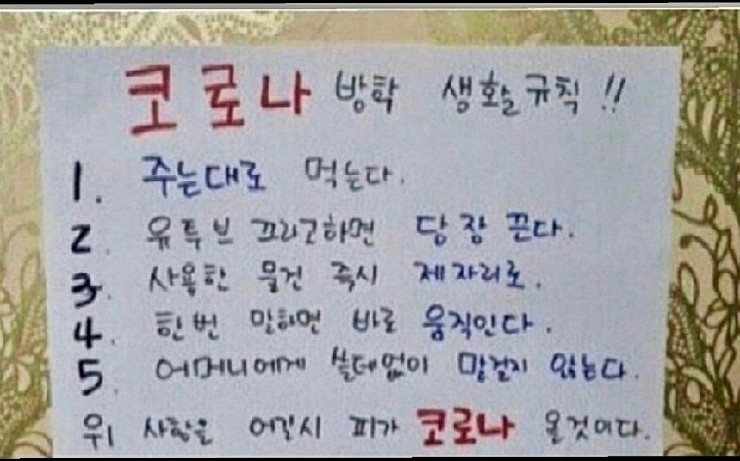 코로나 방학 생활규칙 !!
1. 주는대로 먹는다.
2. 유투브 끄라고하면 당장 끈다.
3. 사용한 물건 즉시 제자리로.
4. 한번 말하면 바로 움직인다.
5. 어머니에게 쓸데없이 말걸지 않는다.
위 사항을 어길시 피가 코로나 올것이다.